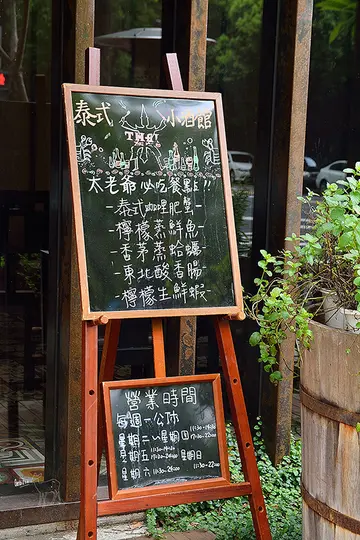 泰式 小酒館
THAI
太老爺 必吃餐點!!
-泰式咖哩肥蟹-
-檸檬蒸鮮魚-
-香茅蒸蛤蠣-
-東北酸香腸-
-檸檬生鮮蝦-
營業時間
每週一公休
星期二~星期四 11:30-14:30 17:30-22:00
星期五 11:30-14:30 17:30-24:00
星期六 11:30-24:00 星期日 11:30-22:00